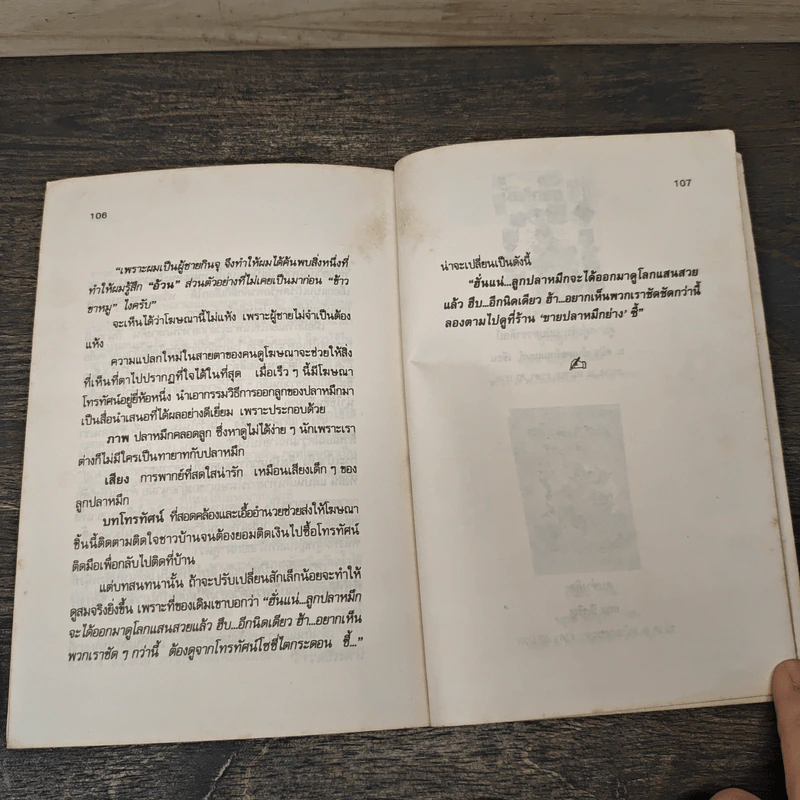 106
“เพราะผมเป็นผู้ชายกินจุ จึงทำให้ผมได้ค้นพบสิ่งหนึ่งที่
ทำให้ผมรู้สึก “อ้วน” ส่วนตัวอย่างที่ไม่เคยเป็นมาก่อน “ข้าว
ขาหมู” ไงครับ”
จะเห็นได้ว่าโฆษณานี้ไม่แห้ง เพราะผู้ชายไม่จำเป็นต้อง
แห้ง
ความแปลกใหม่ในสายตาของคนดูโฆษณาจะช่วยให้สิ่ง
ที่เห็นที่ตาไปปรากฏที่ใจได้ในที่สุด เมื่อเร็ว ๆ นี้มีโฆษณา
โทรทัศน์อยู่ยี่ห้อหนึ่ง นำเอากรรมวิธีการออกลูกของปลาหมึกมา
เป็นสื่อนำเสนอที่ได้ผลอย่างดีเยี่ยม เพราะประกอบด้วย
ภาพ ปลาหมึกคลอดลูก ซึ่งหาดูไม่ได้ง่าย ๆ นักเพราะเรา
ต่างก็ไม่มีใครเป็นทายาทกับปลาหมึก
เสียง การพากย์ที่สดใสน่ารัก เหมือนเสียงเด็ก ๆ ของ
ลูกปลาหมึก
บทโทรทัศน์ ที่สอดคล้องและเอื้ออำนวยช่วยส่งให้โฆษณา
ชิ้นนี้ติดตามติดใจชาวบ้านจนต้องยอมติดเงินไปซื้อโทรทัศน์
ติดมือเพื่อกลับไปติดที่บ้าน
แต่บทสนทนานั้น ถ้าจะปรับเปลี่ยนสักเล็กน้อยจะทำให้
ดูสมจริงยิ่งขึ้น เพราะที่ของเดิมเขาบอกว่า “ฮั่นแน่...ลูกปลาหมึก
จะได้ออกมาดูโลกแสนสวยแล้ว ฮึบ...อีกนิดเดียว ฮ้า...อยากเห็น
พวกเราชัด ๆ กว่านี้ ต้องดูจากโทรทัศน์โซชี่ไตกระดอน ซี้...”
107
น่าจะเปลี่ยนเป็นดังนี้
“ฮั่นแน่...ลูกปลาหมึกจะได้ออกมาดูโลกแสนสวย
แล้ว ฮึบ...อีกนิดเดียว ฮ้า...อยากเห็นพวกเราชัดชัดกว่านี้
ลองตามไปดูที่ร้าน ‘ขายปลาหมึกย่าง’ ซี้”